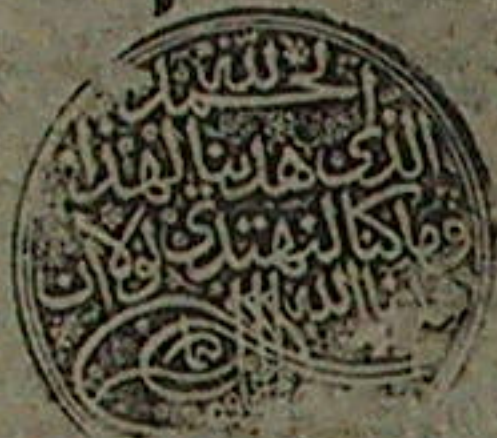 الحمد لله
الذى هدينا لهذا
وما كنا لنهتدى لولا ان
الله